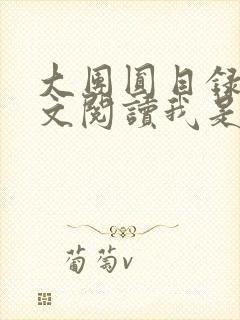 大團圓目錄
文閱讀我是
葡萄v